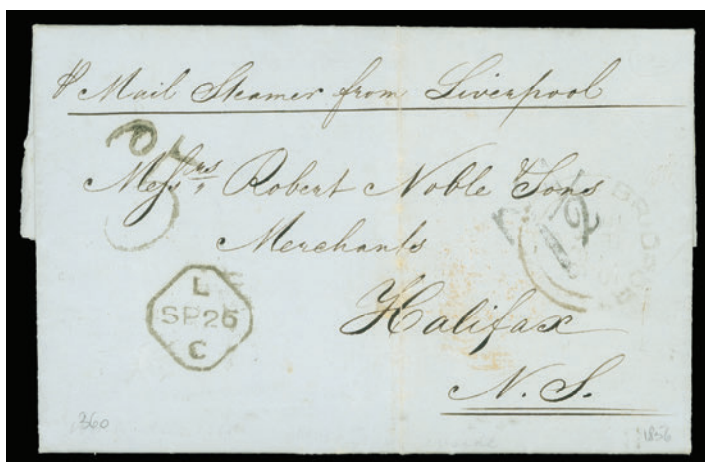 ⅌ Mail Steamer from Liverpool
Messrs. Robert Noble & Sons
Merchants
Halifax
N. S.
L
SP 26
C
BRIDPORT
360
1856